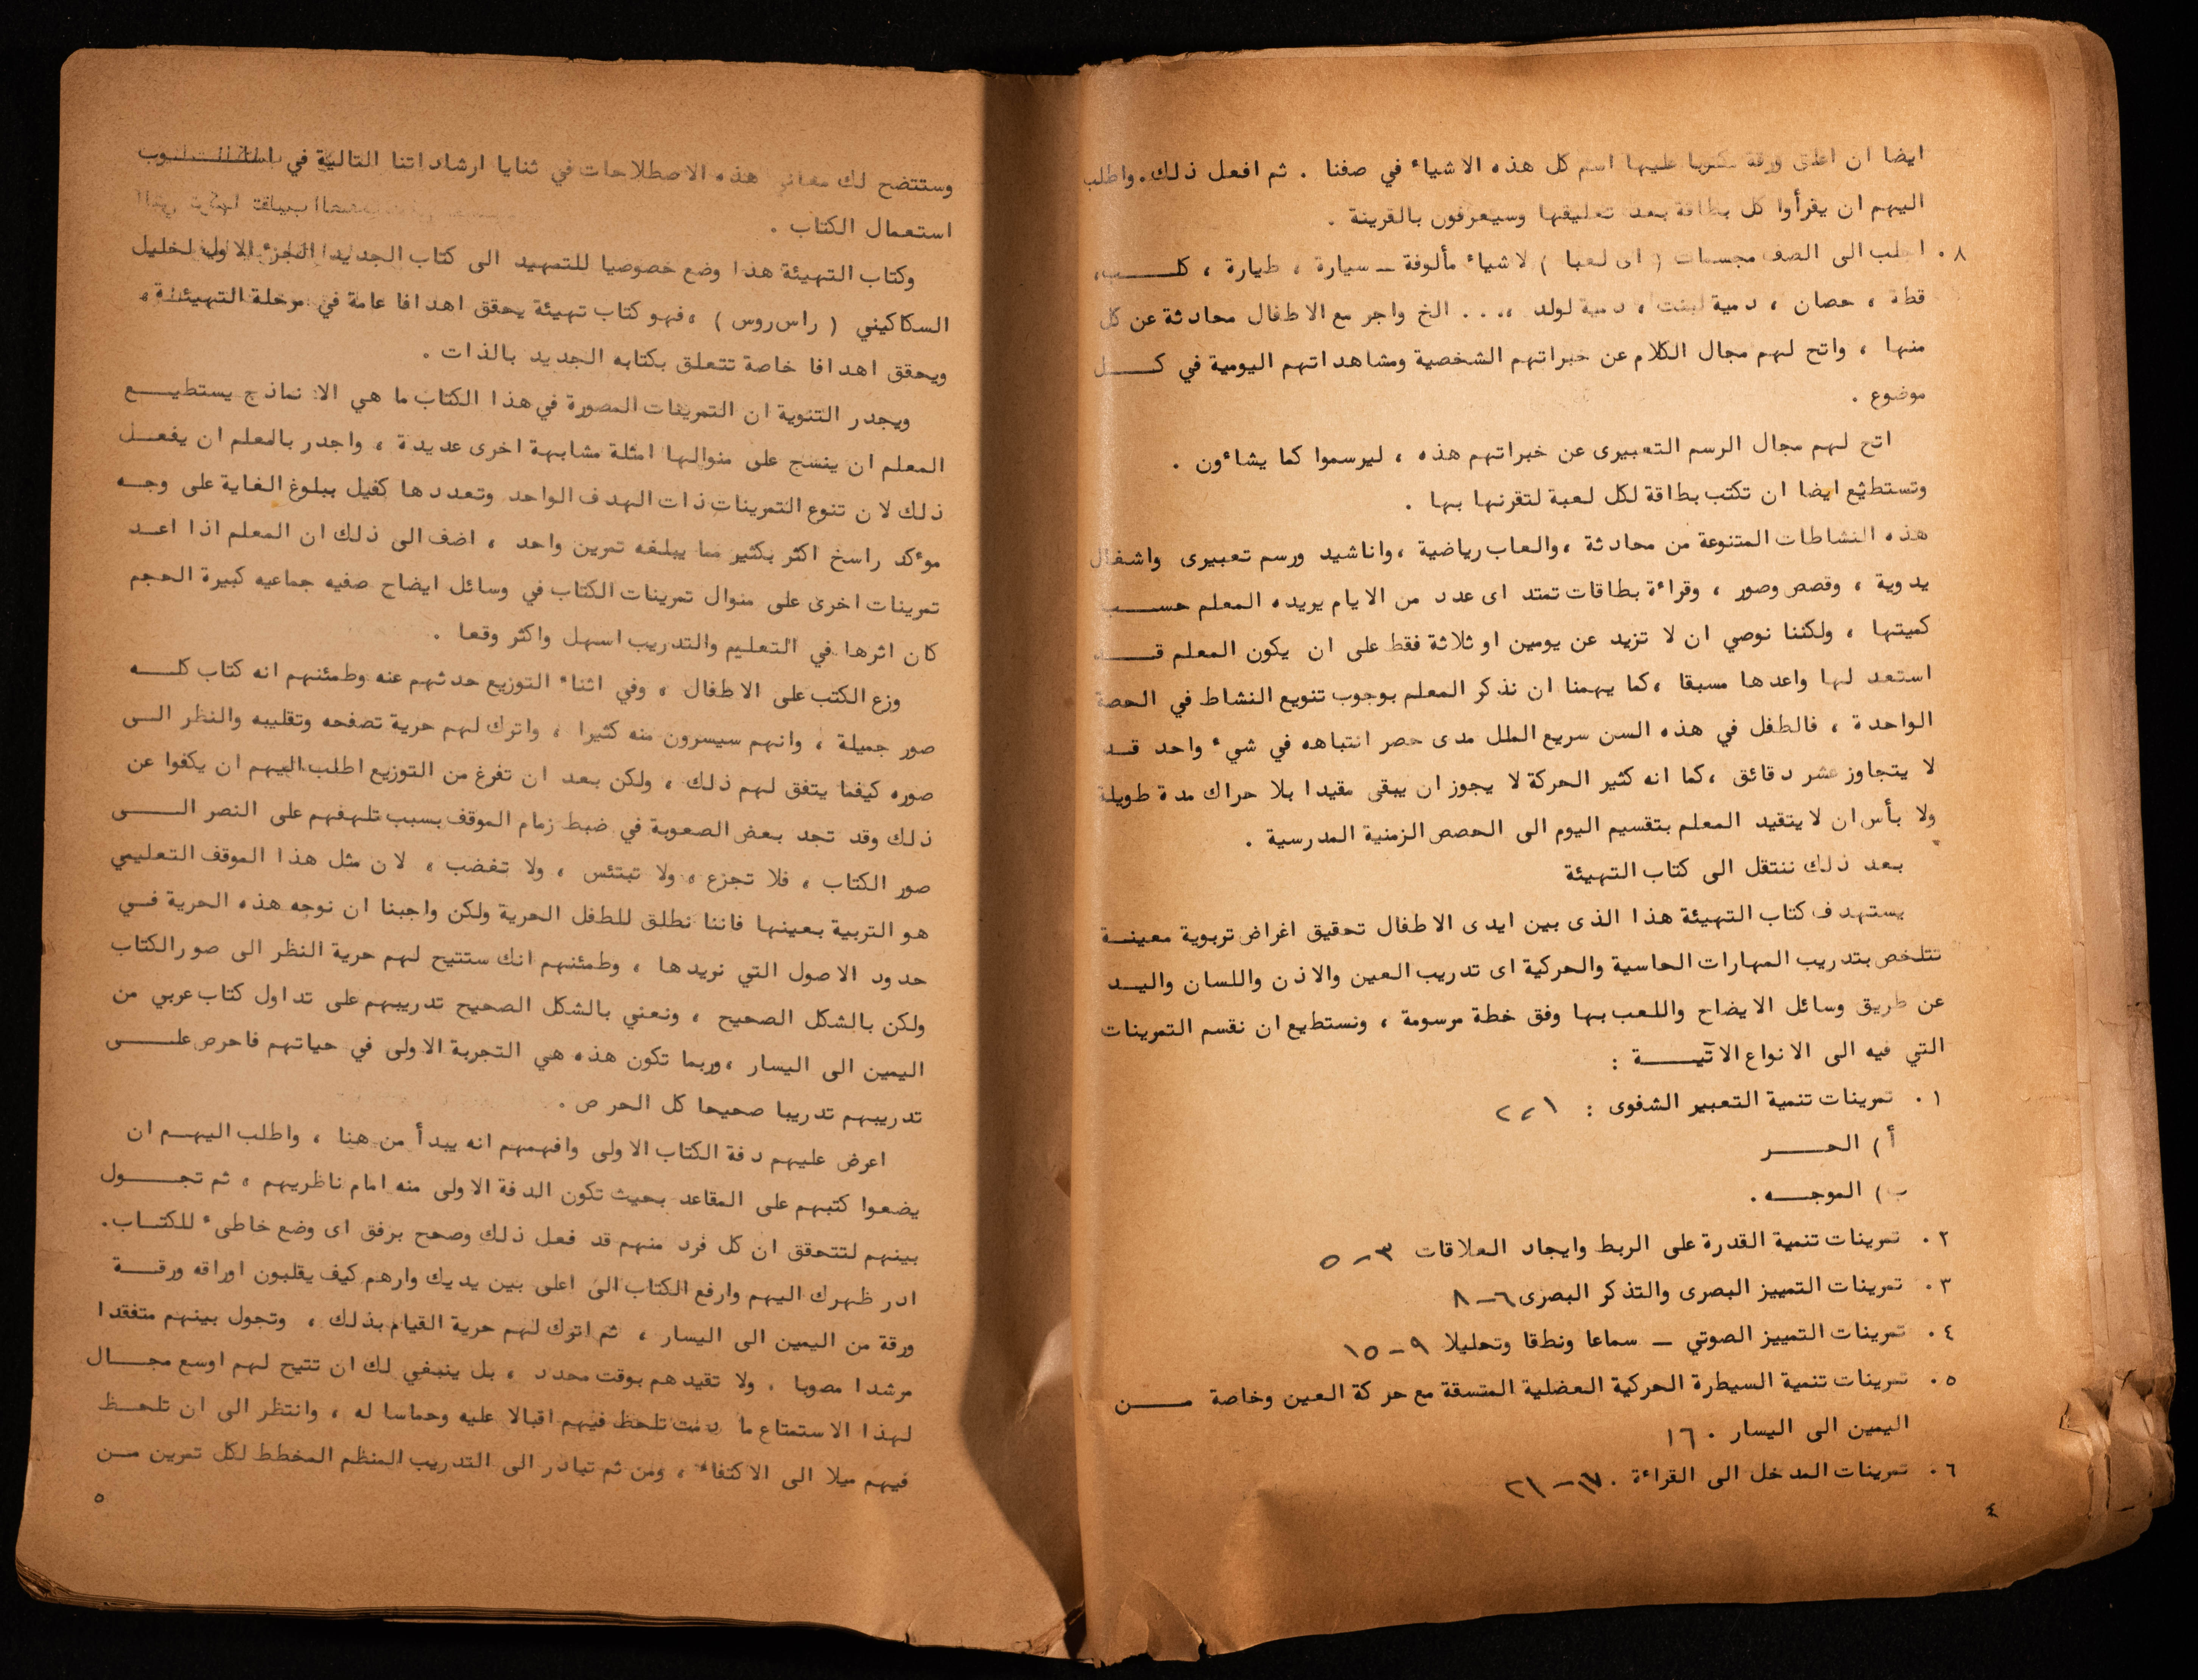 ايضا ان اعلق ورقة مكتوبا عليها اسم كل هذه الاشياء في صفنا . ثم افعل ذلك . واطلب
اليهم ان يقرأوا كل بطاقة بعد تعليقها وسيعرفون بالقرينة .
٨ . اجلب الى الصف مجسمات ( اى لعبا ) لاشياء مألوفة ــ سيارة ، طيارة ، كلــــب،
قطة ، حصان ، دمية لبنت ، دمية لولد ،... الخ واجر مع الاطفال محادثة عن كل
منها ، واتح لهم مجال الكلام عن خبراتهم الشخصية ومشاهداتهم اليومية في كــــل
موضوع .
اتح لهم مجال الرسم التعبيرى عن خبراتهم هذه ، ليرسموا كما يشاءون .
وتستطيع ايضا ان تكتب بطاقة لكل لعبة لتقرنها بها .
هذه النشاطات المتنوعة من محادثة ،والعاب رياضية ،واناشيد ورسم تعبيرى واشغال
يدوية ، وقصص وصور ، وقراءة بطاقات تمتد اى عدد من الايام يريده المعلم حســـب
كميتها ، ولكننا نوصي ان لا تزيد عن يومين او ثلاثة فقط على ان يكون المعلم قــــد
استعد لها واعدها مسبقا ،كما يهمنا ان نذكر المعلم بوجوب تنويع النشاط في الحصة
الواحدة ، فالطفل في هذه السن سريع الملل مدى حصر انتباهه في شيء واحد قــد
لا يتجاوز عشر دقائق ،كما انه كثير الحركة لا يجوز ان يبقى مقيدا بلا حراك مدة طويلة
ولا بأس ان لا يتقيد المعلم بتقسيم اليوم الى الحصص الزمنية المدرسية .
بعد ذلك ننتقل الى كتاب التهيئة
يستهدف كتاب التهيئة هذا الذى بين ايدى الاطفال تحقيق اغراض تربوية معينــة
تتلخص بتدريب المهارات الحاسية والحركية اى تدريب العين والاذن واللسان واليــد
عن طريق وسائل الايضاح واللعب بها وفق خطة مرسومة ، ونستطيع ان نقسم التمرينات
التي فيه الى الانواع الآتيـــــة :
١ . تمرينات تنمية التعبير الشفوى : ١،٢
أ ) الحــــر
ب) الموجـــه .
٢ . تمرينات تنمية القدرة على الربط وايجاد العلاقات ٣-٥
٣ . تمرينات التمييز البصرى والتذكر البصرى ٦-٨
٤ . تمرينات التمييز الصوتي ــ سماعا ونطقا وتحليلا ٩-١٥
٥ . تمرينات تنمية السيطرة الحركية العضلية المتسقة مع حركة العين وخاصة مــــن
اليمين الى اليسار . ١٦
٦ . تمرينات المدخل الى القراءة . ١٧-٢١
٤
وستتضح لك معاني هذه الاصطلاحات في ثنايا ارشاداتنا التالية في
استعمال الكتاب .
وكتاب التهيئة هذا وضع خصوصيا للتمهيد الى كتاب الجديد الجزء الاول لخليل
السكاكيني ( راس روس ) ،فهو كتاب تهيئة يحقق اهدافا عامة في مرحلة التهيئــة،
ويحقق اهدافا خاصة تتعلق بكتابه الجديد بالذات .
ويجدر التنوية ان التمرينات المصورة في هذا الكتاب ما هي الا نماذج يستطيـــع
المعلم ان ينسج على منوالها امثلة مشابهة اخرى عديدة ، واجدر بالمعلم ان يفعــل
ذلك لان تنوع التمرينات ذات الهدف الواحد وتعددها كفيل ببلوغ الغاية على وجــه
موءكد راسخ اكثر بكثير مما يبلغه تمرين واحد ، اضف الى ذلك ان المعلم اذا اعــد
تمرينات اخرى على منوال تمرينات الكتاب في وسائل ايضاح صفيه جماعيه كبيرة الحجم
كان اثرها في التعليم والتدريب اسهل واكثر وقعا .
وزع الكتب على الاطفال ، وفي اثناء التوزيع حدثهم عنه وطمئنهم انه كتاب كلـــه
صور جميلة ، وانهم سيسرون منه كثيرا ، واترك لهم حرية تصفحه وتقليبه والنظر الــى
صوره كيفما يتفق لهم ذلك ، ولكن بعد ان تفرغ من التوزيع اطلب اليهم ان يكفوا عن
ذلك وقد تجد بعض الصعوبة في ضبط زمام الموقف بسبب تلهفهم على النصر الــــى
صور الكتاب ، فلا تجزع ، ولا تبتئس ، ولا تغضب ، لان مثل هذا الموقف التعليمي
هو التربية بعينها فاننا نطلق للطفل الحرية ولكن واجبنا ان نوجه هذه الحرية فــي
حدود الاصول التي نريدها ، وطمئنهم انك ستتيح لهم حرية النظر الى صور الكتاب
ولكن بالشكل الصحيح ، ونعني بالشكل الصحيح تدريبهم على تداول كتاب عربي من
اليمين الى اليسار ،وربما تكون هذه هي التجربة الاولى في حياتهم فاحرص علــــى
تدريبهم تدريبا صحيحا كل الحرص .
اعرض عليهم دفة الكتاب الاولى وافهمهم انه يبدأ من هنا ، واطلب اليهــم ان
يضعوا كتبهم على المقاعد بحيث تكون الدفة الاولى منه امام ناظريهم ، ثم تجـــول
بينهم لتتحقق ان كل فرد منهم قد فعل ذلك وصحح برفق اى وضع خاطىء للكتــاب.
ادر ظهرك اليهم وارفع الكتاب الى اعلى بين يديك وارهم كيف يقلبون اوراقه ورقـــة
ورقة من اليمين الى اليسار ، ثم اترك لهم حرية القيام بذلك ، وتجول بينهم متفقدا
مرشدا مصوبا . ولا تقيدهم بوقت محدد ، بل ينبغي لك ان تتيح لهم اوسع مجـــال
لهذا الاستمتاع ما دمت تلحظ فيهم اقبالا عليه وحماسا له ، وانتظر الى ان تلحــظ
فيهم ميلا الى الاكتفاء ، ومن ثم تبادر الى التدريب المنظم المخطط لكل تمرين مــن
٥